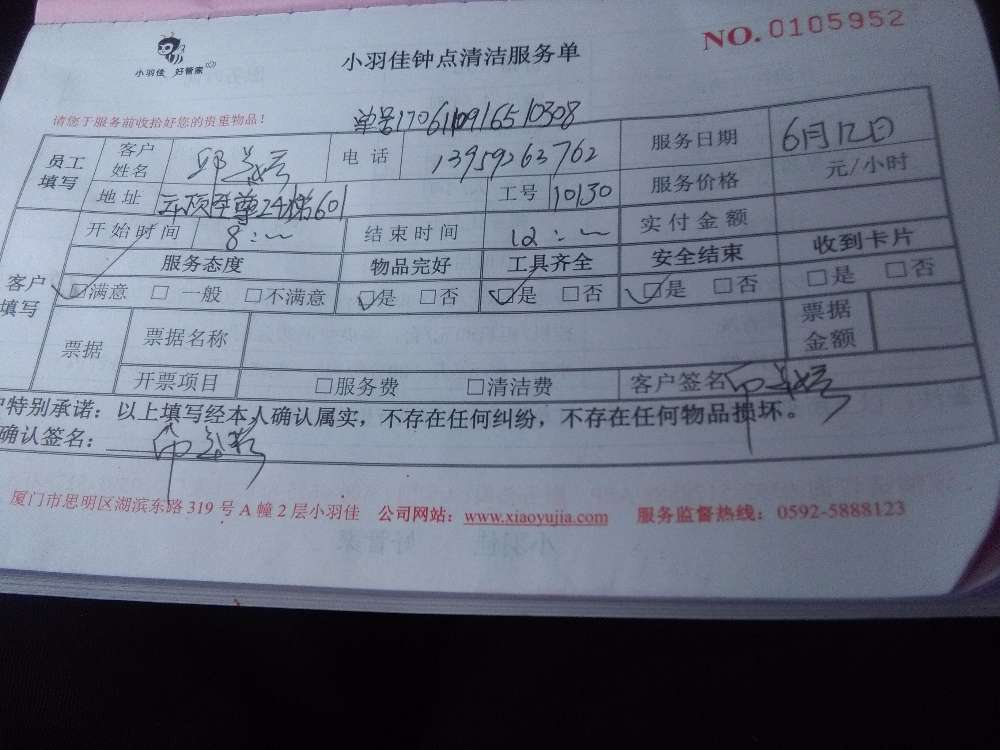 小羽佳 好管家
小羽佳钟点清洁服务单
NO.0105952
请您于服务前收拾好您的贵重物品！
单号1706110916510308
员工填写 客户姓名 电话 13959263762 服务日期 6月12日
地址 云顶至尊24梯601 工号 10130 服务价格 元/小时
开始时间 8:～ 结束时间 12:～ 实付金额
客户填写 服务态度 物品完好 工具齐全 安全结束 收到卡片
☑满意 □一般 □不满意 ☑是 □否 ☑是 □否 ☑是 □否 □是 □否
票据 票据名称 票据金额
开票项目 □服务费 □清洁费 客户签名
户特别承诺：以上填写经本人确认属实，不存在任何纠纷，不存在任何物品损坏。
确认签名：
厦门市思明区湖滨东路 319 号 A 幢 2 层小羽佳 公司网站：www.xiaoyujia.com 服务监督热线：0592-5888123